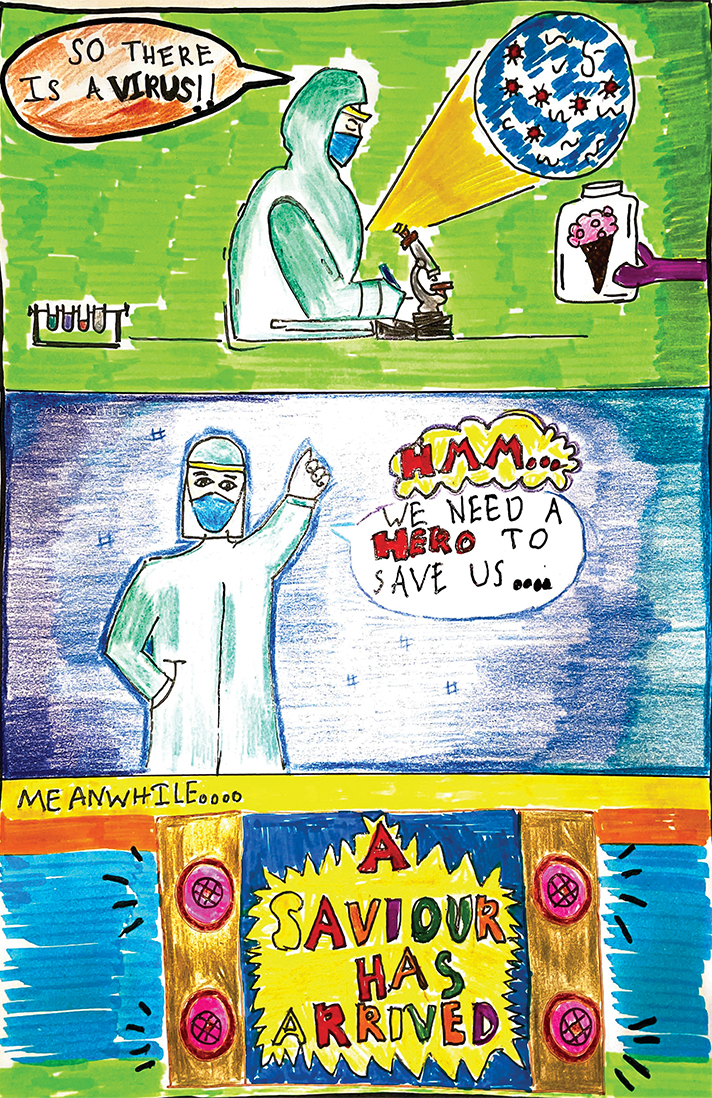 SO THERE
IS A VIRUS!!
HMM...
WE NEED A
HERO TO
SAVE US....
MEANWHILE....
A
SAVIOUR
HAS
ARRIVED